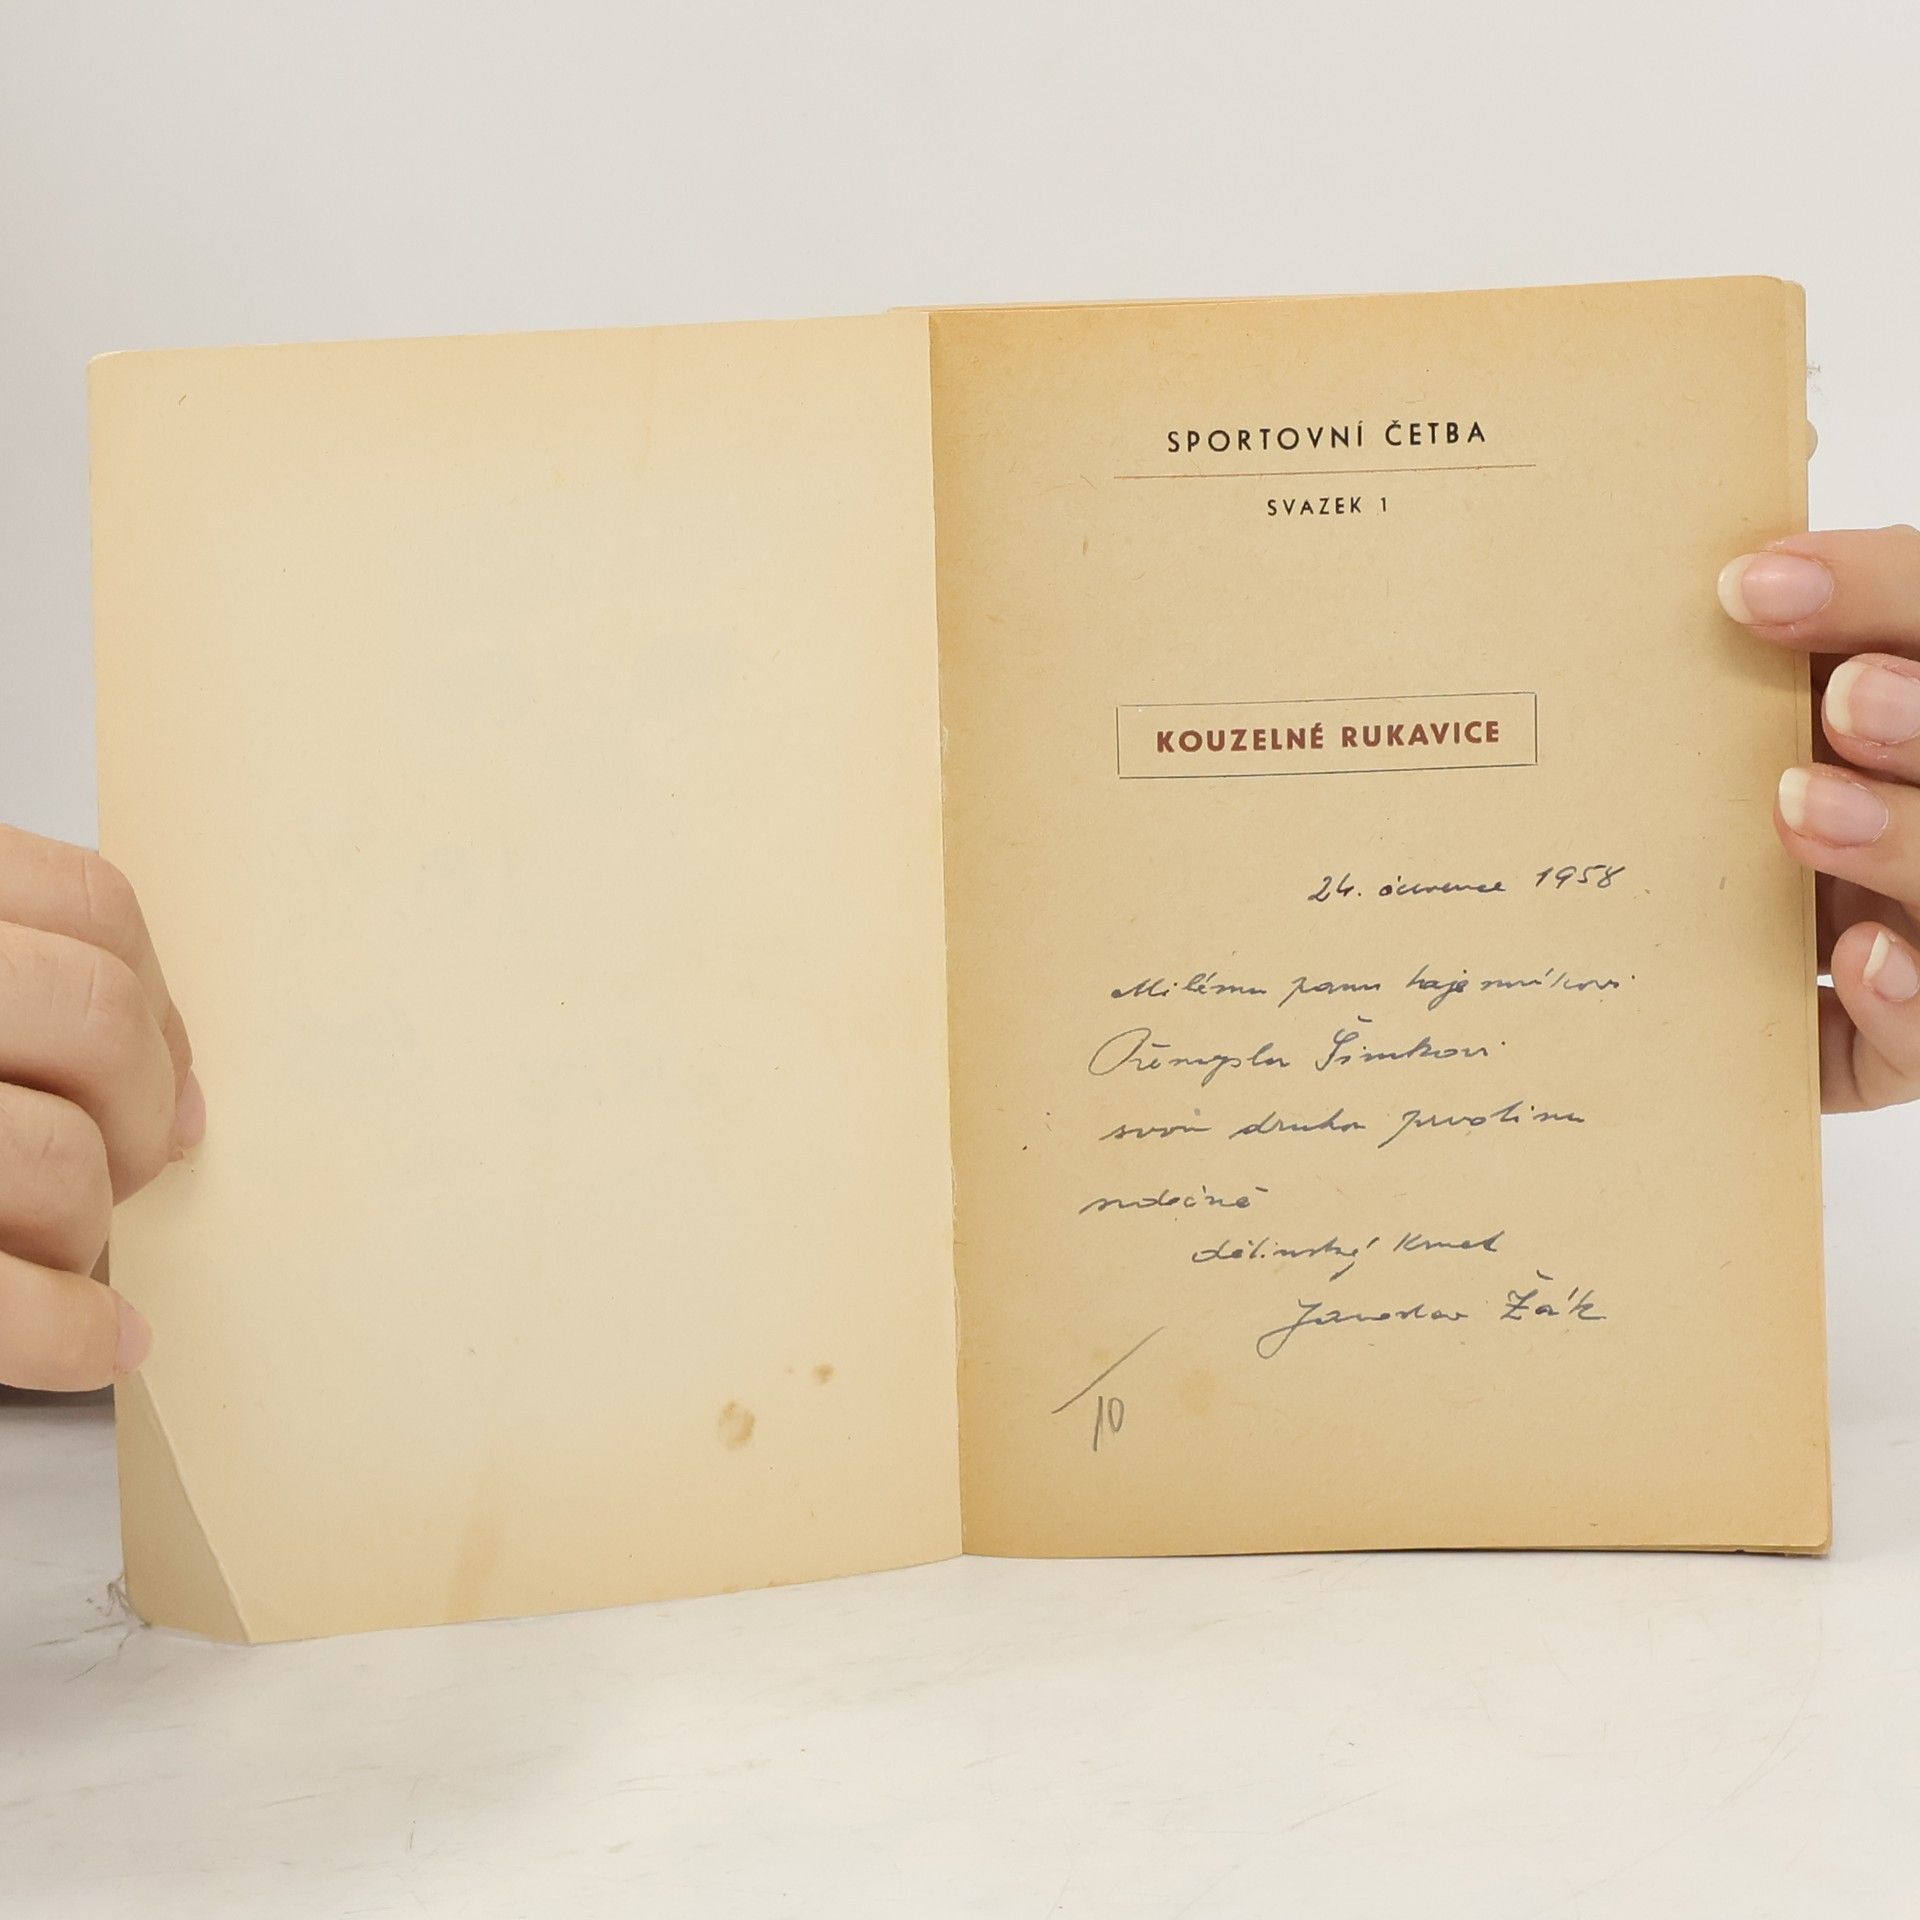 SPORTOVNÍ ČETBA
SVAZEK 1
KOUZELNÉ RUKAVICE
24. července 1958
Milému panu hajemníkovi
Přemyslu Šimkovi
svou druhou prvotinu
srdečně
dělinský Kmet
Jaroslav Žák
/10